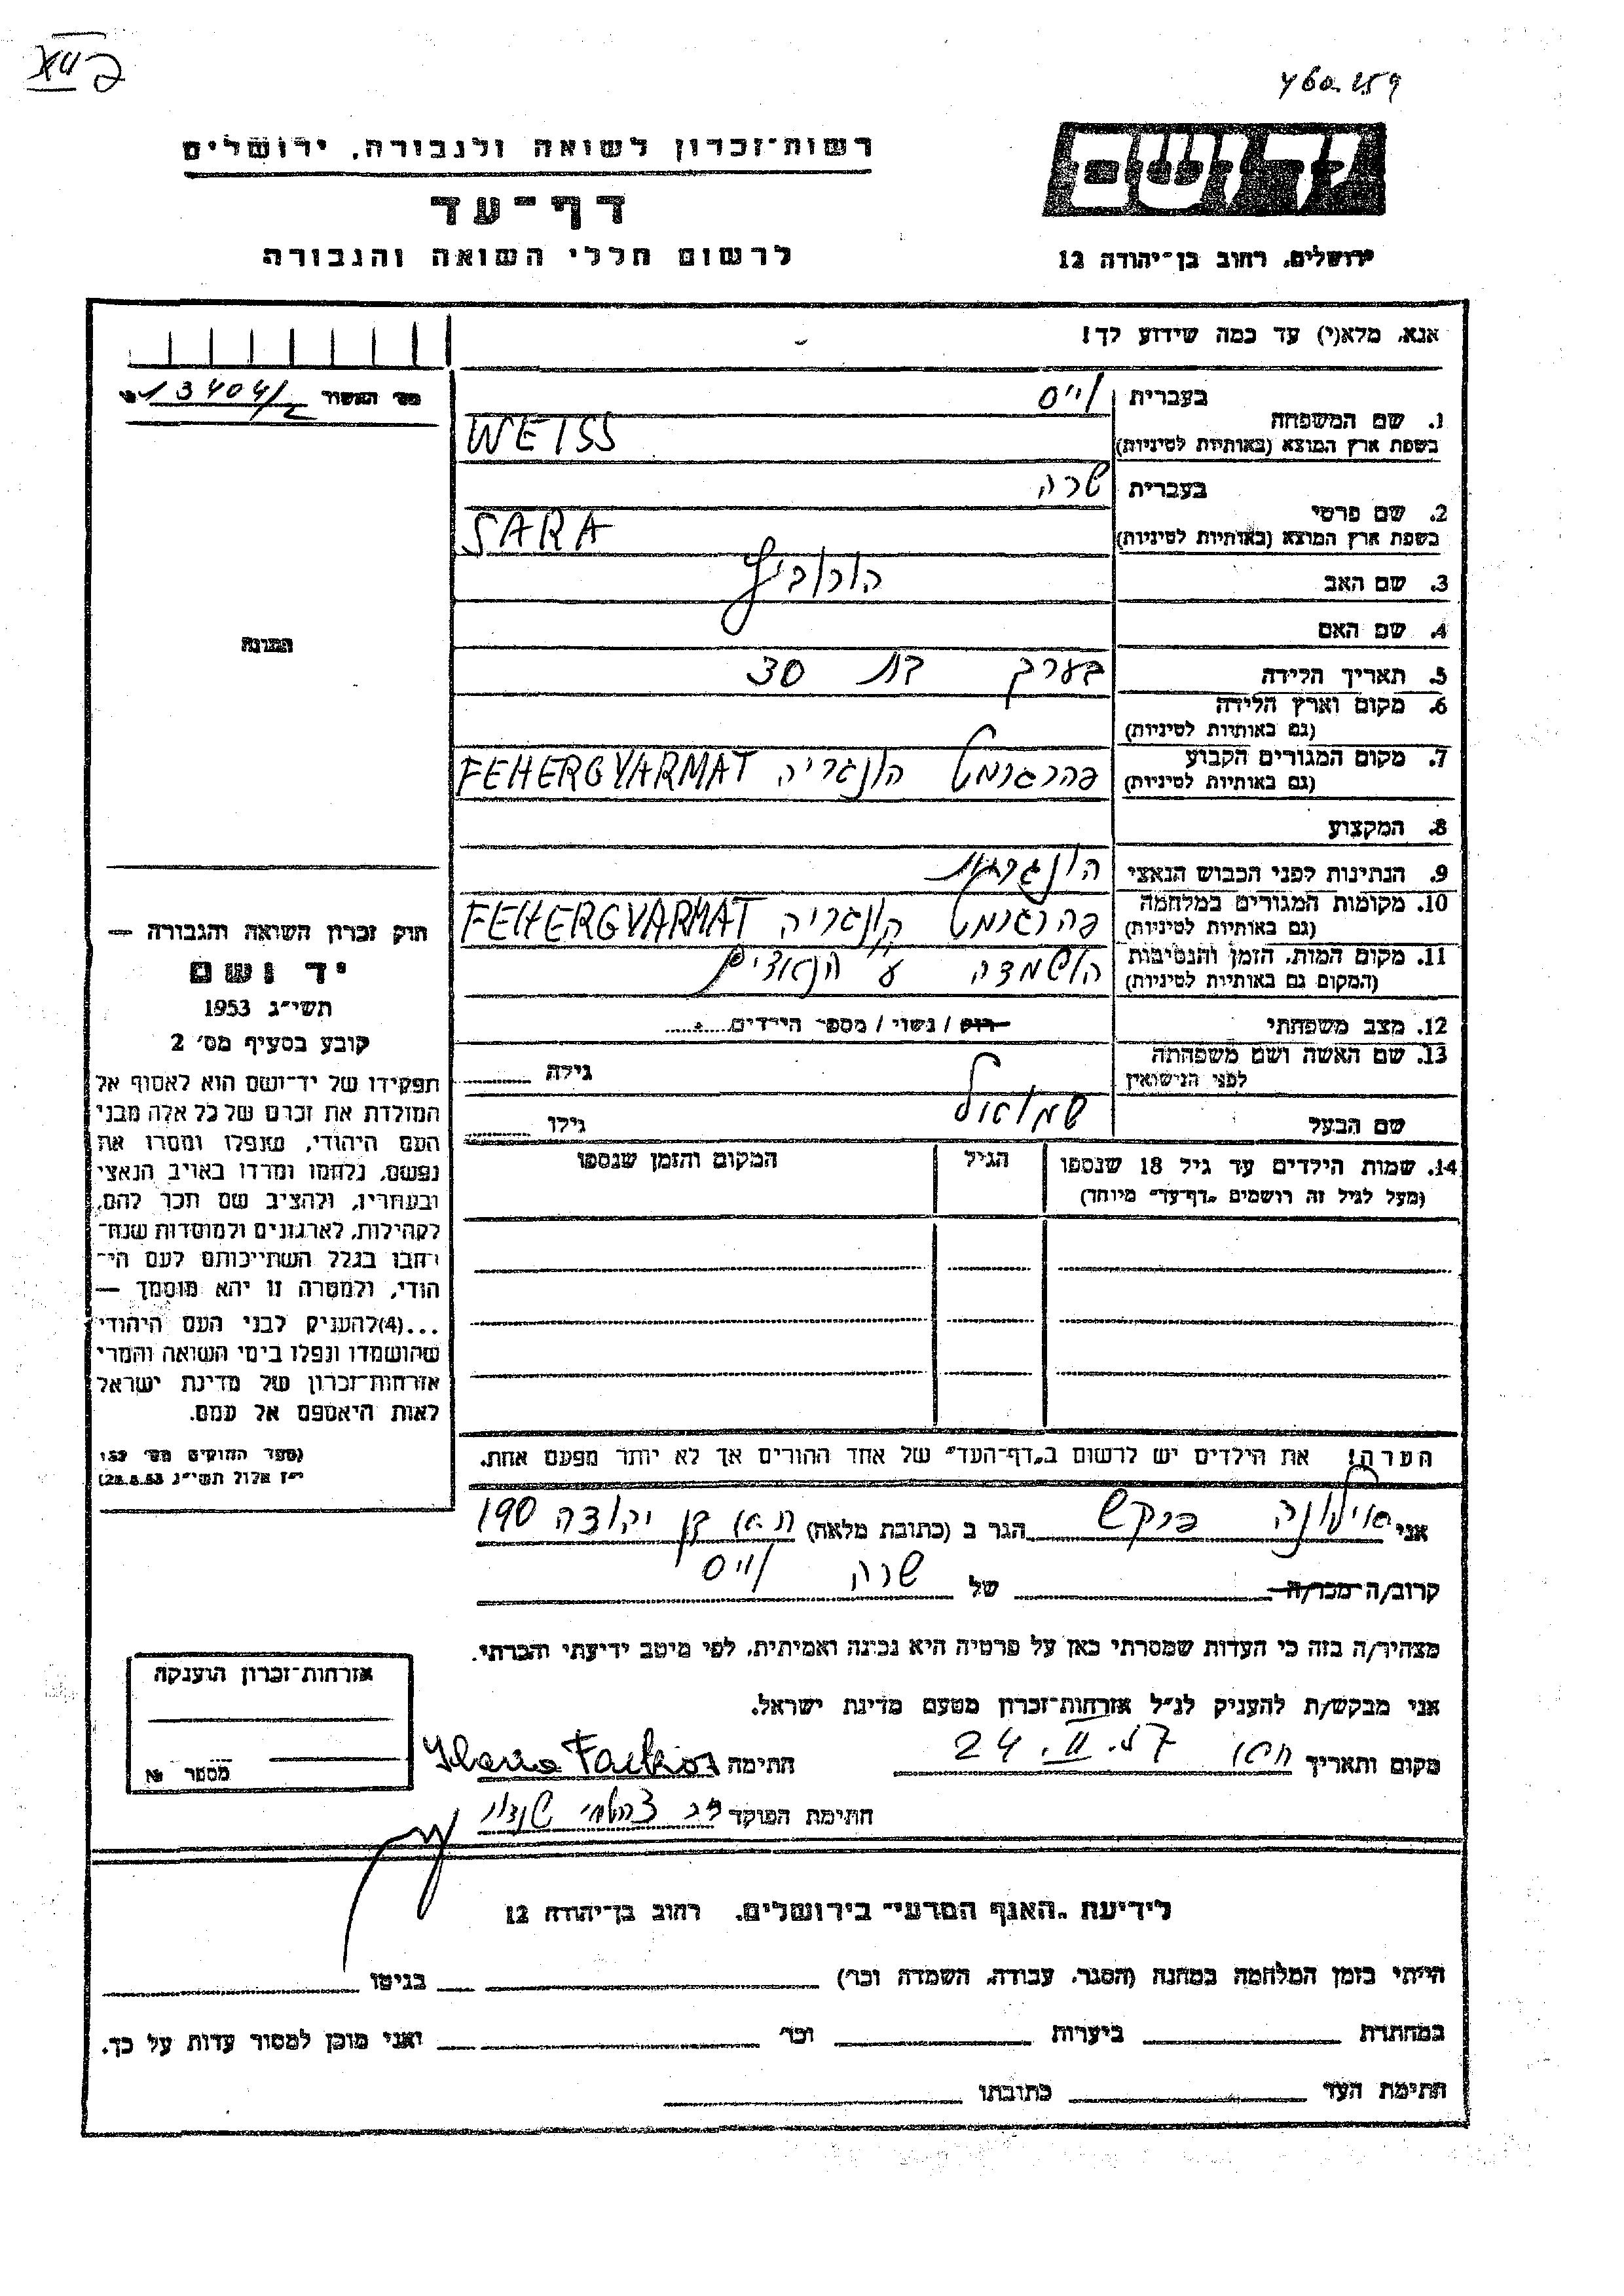 XII פ
460.159
רשות־זכרון לשואה ולגבורה, ירושלים
דף־עד
לרשום חללי השואה והגבורה
יד ושם
ירושלים, רחוב בן־יהודה 12
אנא, מלא(י) עד כמה שידוע לך!
מס' האשור 13404/2
התמונה
1. שם המשפחה
בעברית וייס
בשפת ארץ המוצא (באותיות לטיניות) WEISS
2. שם פרטי
בעברית שרה
בשפת ארץ המוצא (באותיות לטיניות) SARA
3. שם האב הורוביץ
4. שם האם
5. תאריך הלידה בערך בת 30
6. מקום וארץ הלידה
(גם באותיות לטיניות)
7. מקום המגורים הקבוע
(גם באותיות לטיניות) פהרגרמט הונגריה FEHERGYARMAT
8. המקצוע
9. הנתינות לפני הכבוש הנאצי הונגרית
10. מקומות המגורים במלחמה
(גם באותיות לטיניות) פהרגרמט הונגריה FEHERGYARMAT
11. מקום המות, הזמן והנסיבות
(המקום גם באותיות לטיניות) הושמדה ע הנאצים
12. מצב משפחתי רוק / נשוי / מספר הילדים
13. שם האשה ושם משפחתה
לפני הנישואין גילה
שם הבעל שמואל גילו
14. שמות הילדים עד גיל 18 שנספו
(מעל לגיל זה רושמים "דף־עד" מיוחד)
הגיל
המקום והזמן שנספו
הערה! את הילדים יש לרשום ב"דף־העד" של אחד ההורים אך לא יותר מפעם אחת.
חוק זכרון השואה והגבורה —
יד ושם
תשי"ג 1953
קובע בסעיף מס' 2
תפקידו של יד־ושם הוא לאסוף אל
המולדת את זכרם של כל אלה מבני
העם היהודי, שנפלו ומסרו את
נפשם, נלחמו ומרדו באויב הנאצי
ובעוזריו, ולהציב שם וזכר להם,
לקהילות, לארגונים ולמוסדות שנח־
רבו בגלל השתייכותם לעם הי־
הודי, ולמטרה זו יהא מוסמך —
...(4)להעניק לבני העם היהודי
שהושמדו ונפלו בימי השואה והמרי
אזרחות־זכרון של מדינת ישראל
לאות היאספם אל עמם.
(ספר החוקים מס' 132
י"ז אלול תשי"ג 28.8.53)
אני אילונה פרקש הגר ב (כתובת מלאה) ת"א בן יהודה 190
קרוב/ה מכר/ה של שרה וייס
מצהיר/ה בזה כי העדות שמסרתי כאן על פרטיה היא נכונה ואמיתית, לפי מיטב ידיעתי והכרתי.
אני מבקש/ת להעניק לנ"ל אזרחות־זכרון מטעם מדינת ישראל.
מקום ותאריך 24.II.57
חתימה Farkas
חתימת הפוקד
אזרחות־זכרון הוענקה
מספר №
לידיעת "האגף המדעי" בירושלים, רחוב בן־יהודה 12
הייתי בזמן המלחמה במחנה (הסגר, עבודה, השמדה וכו') בגיטו
במחתרת ביערות וכו' ואני מוכן למסור עדות על כך.
חתימת העד כתובתו